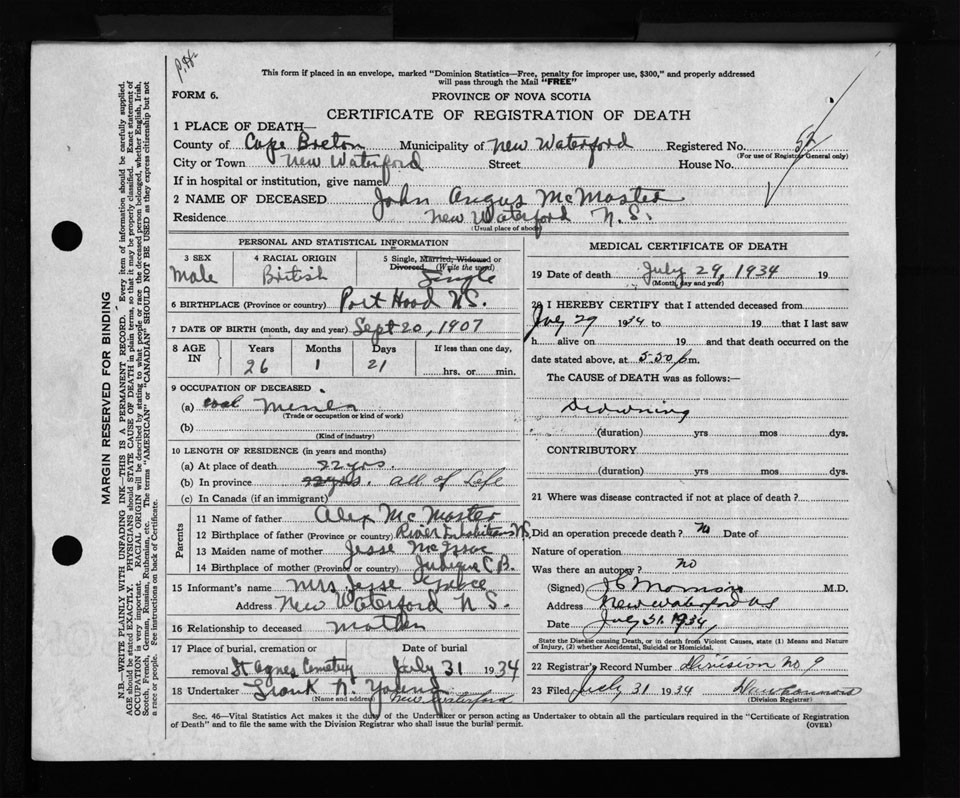 P.H.
This form if placed in an envelope, marked "Dominion Statistics—Free, penalty for improper use, $300," and properly addressed
will pass through the Mail "FREE"
FORM 6.
PROVINCE OF NOVA SCOTIA
CERTIFICATE OF REGISTRATION OF DEATH
1 PLACE OF DEATH—
County of Cape Breton Municipality of New Waterford Registered No. 52
(For use of Registrar General only)
City or Town New Waterford Street House No.
If in hospital or institution, give name
2 NAME OF DECEASED John Angus McMaster
Residence New Waterford N.S.
(Usual place of abode)
PERSONAL AND STATISTICAL INFORMATION
3 SEX 4 RACIAL ORIGIN 5 Single, Married, Widowed or
Divorced (Write the word)
Male British Single
6 BIRTHPLACE (Province or country) Port Hood N.S.
7 DATE OF BIRTH (month, day and year) Sept 20, 1907
8 AGE IN Years Months Days If less than one day,
26 1 21 hrs. or min.
9 OCCUPATION OF DECEASED
(a) coal
(Trade or occupation or kind of work)
(b)
(Kind of industry)
10 LENGTH OF RESIDENCE (in years and months)
(a) At place of death 22 yrs.
(b) In province 22 yrs. all of Life
(c) In Canada (if an immigrant)
Parents
11 Name of father Alex McMaster
12 Birthplace of father (Province or country) River Inhabitans N.S.
13 Maiden name of mother Jesse McIssac
14 Birthplace of mother (Province or country) Judique C.B.
15 Informant's name Mrs Jesse
Address New Waterford N.S.
16 Relationship to deceased Mother
17 Place of burial, cremation or Date of burial
removal St Agnes Cemetry July 31 1934
18 Undertaker Frank N. Young
(Name and address) New Waterford
MEDICAL CERTIFICATE OF DEATH
19 Date of death July 29, 1934 19
(Month, day and year)
20 I HEREBY CERTIFY that I attended deceased from
July 29 1934 to 19 that I last saw
h alive on 19 and that death occurred on the
date stated above, at 5.30 p m.
The CAUSE OF DEATH was as follows:
Drowning
(duration) yrs mos dys.
CONTRIBUTORY
(duration) yrs mos dys.
21 Where was disease contracted if not at place of death?
Did an operation precede death? No Date of
Nature of operation
Was there an autopsy? No
(Signed) M.D.
Address New Waterford NS
Date July 31. 1934
State the Disease causing Death, or in death from Violent Causes, state (1) Means and Nature
of Injury, (2) whether Accidental, Suicidal or Homicidal.
22 Registrar's Record Number Division No 9
23 Filed July 31 1934
(Division Registrar)
Sec. 46—Vital Statistics Act makes it the duty of the Undertaker or person acting as Undertaker to obtain all the particulars required in the "Certificate of Registration
of Death" and to file the same with the Division Registrar who shall issue the burial permit.
(OVER)
MARGIN RESERVED FOR BINDING
N.B.—WRITE PLAINLY WITH UNFADING INK—THIS IS A PERMANENT RECORD. Every item of information should be carefully supplied.
AGE should be stated EXACTLY. PHYSICIANS should STATE CAUSE OF DEATH in plain terms, so that it may be properly classified. Exact statement of
OCCUPATION is very important. RACIAL ORIGIN will be described by stating to what people or race the deceased person belonged, whether English, Irish,
Scotch, French, German, Russian, Ruthenian, etc. The terms "AMERICAN" or "CANADIAN" SHOULD NOT BE USED as they express citizenship but not
a race or people. See instructions on back of Certificate.